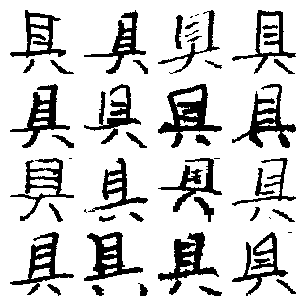 具具具具
具具具具
具具具具
具具具具